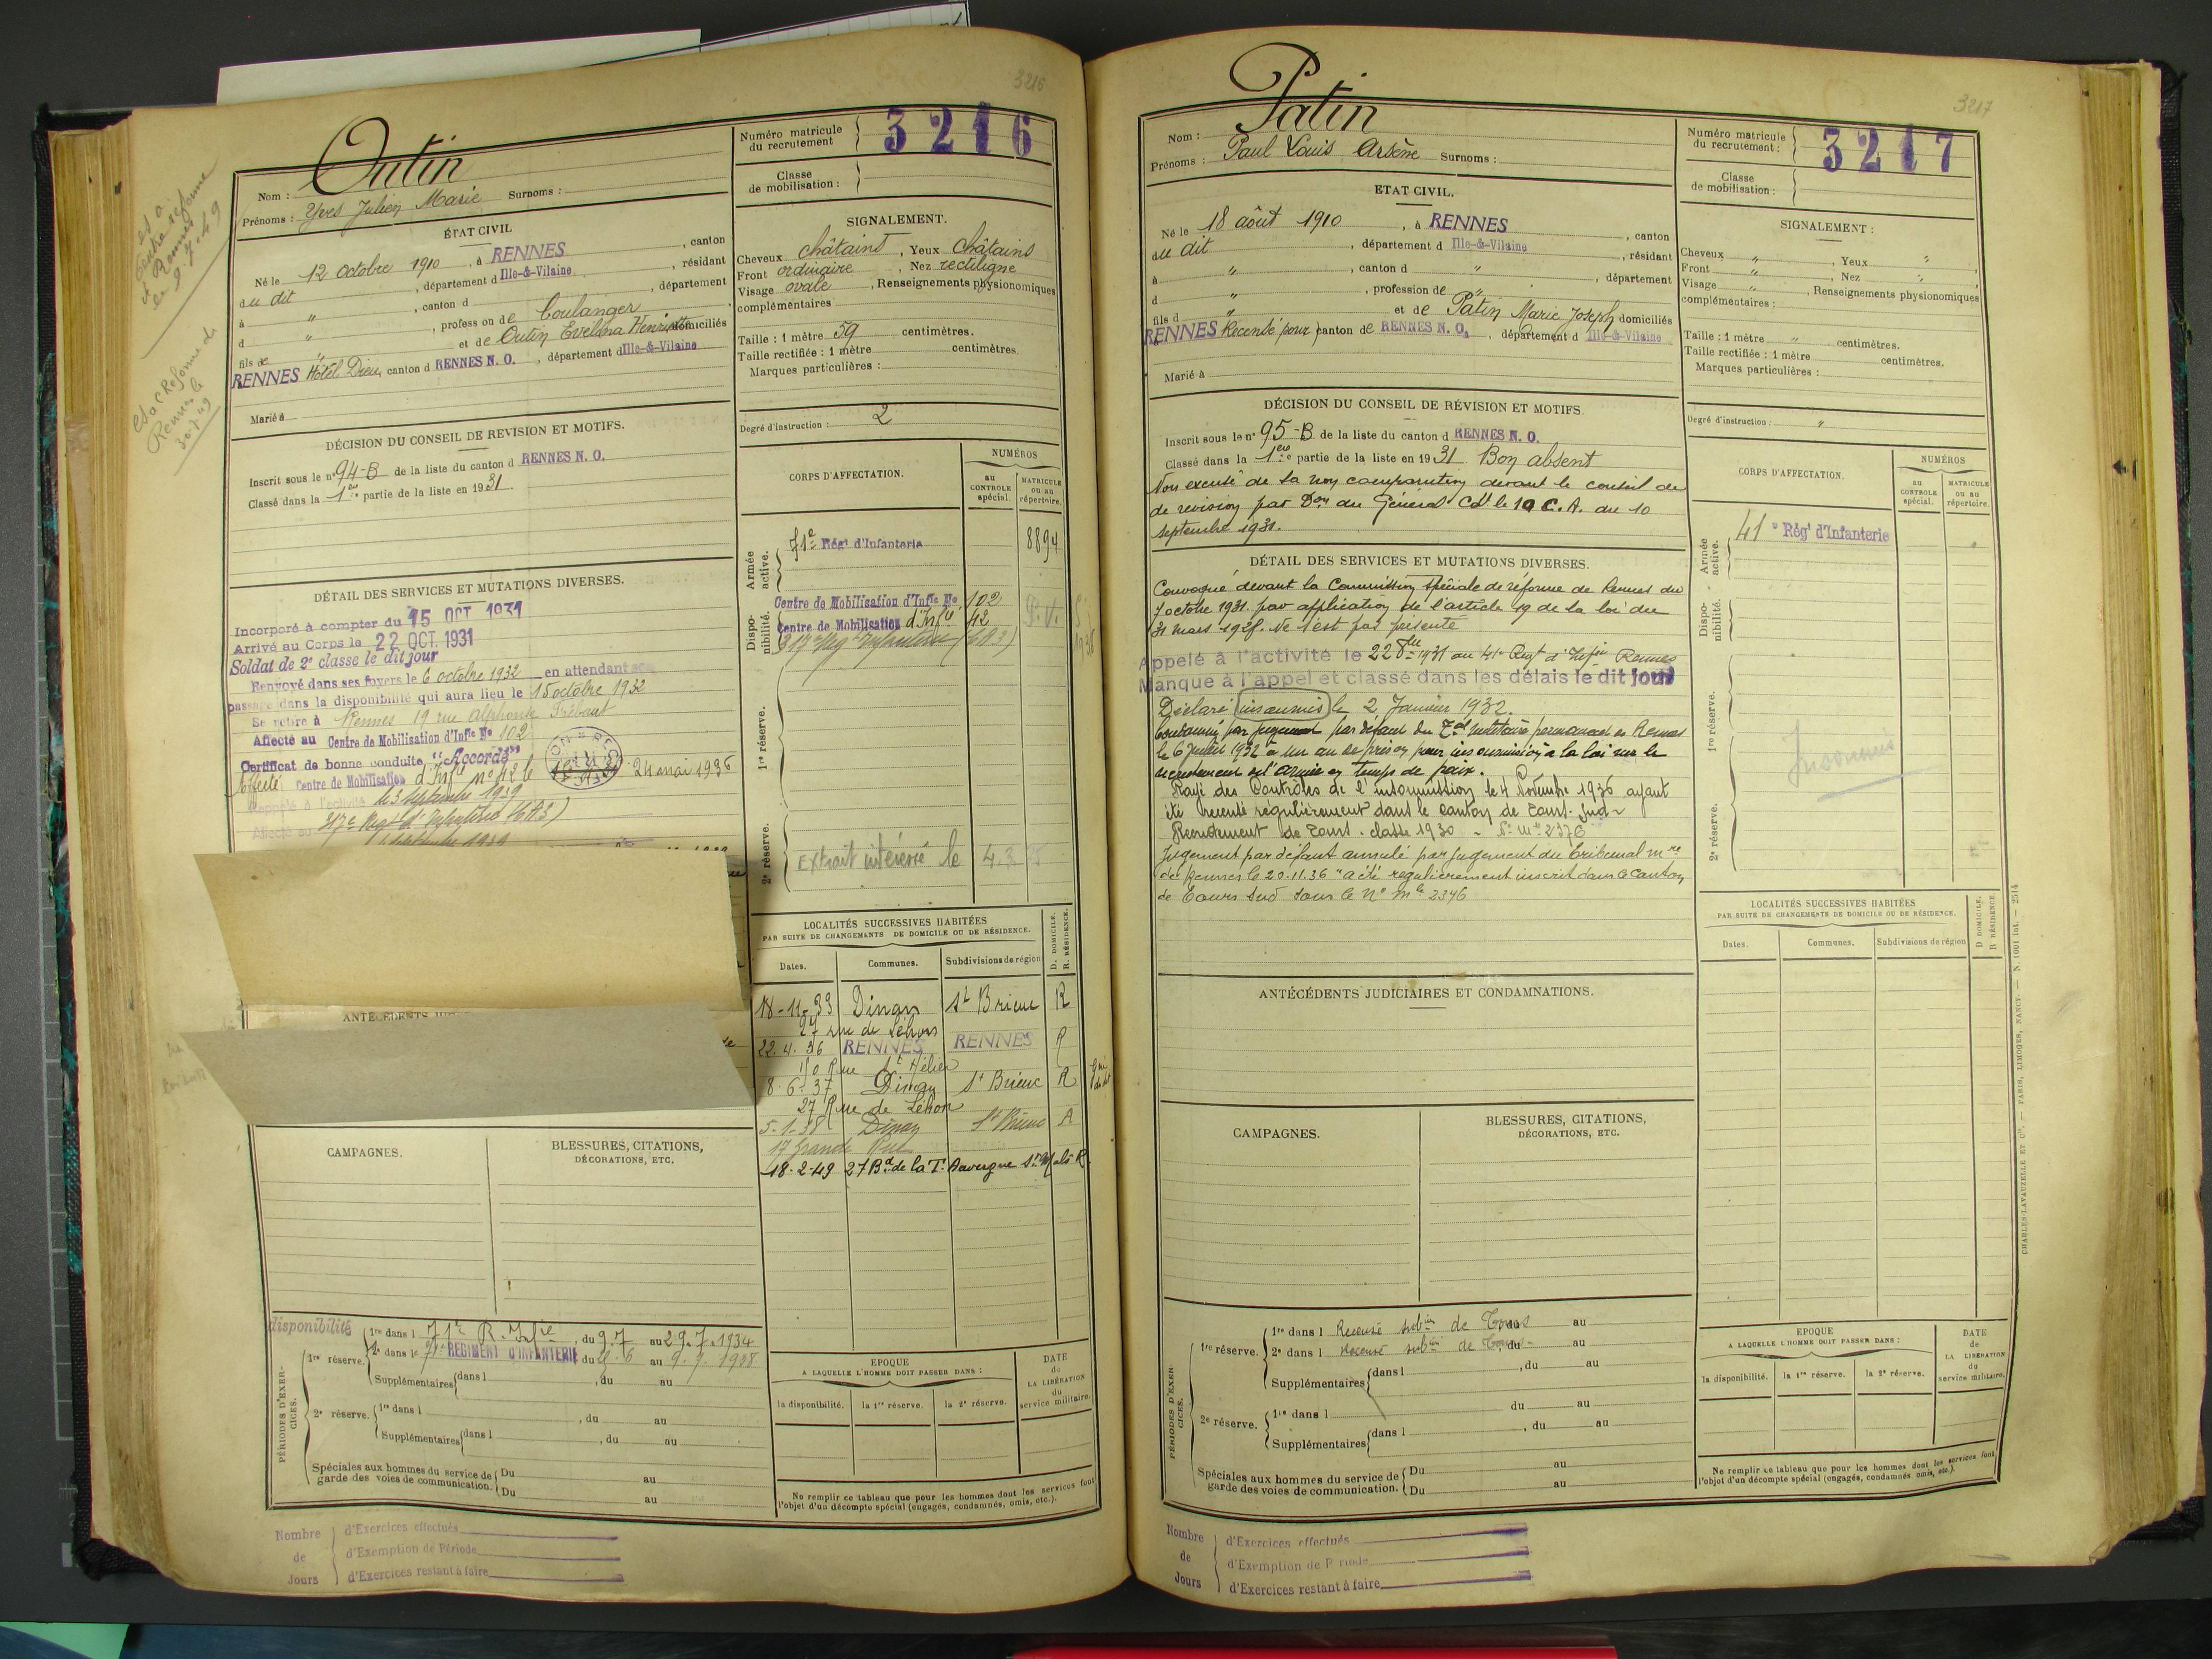 3216
Outin
Nom :
Prénoms : Yves Julien Marie Surnoms :
Numéro matricule du recrutement
3216
Classe de mobilisation :
ÉTAT CIVIL
Né le 12 Octobre 1910, à RENNES, canton
du dit, département d Ille-&-Vilaine, résidant
à " , canton d , département
d " , profession de boulanger
fils de " et de Outin Evelina Henriette domiciliés
RENNES Hôtel Dieu, canton d RENNES N. O., département d Ille-&-Vilaine
Marié à
SIGNALEMENT.
Cheveux châtains, Yeux châtains
Front ordinaire, Nez rectiligne
Visage ovale, Renseignements physionomiques
complémentaires
Taille : 1 mètre 59 centimètres.
Taille rectifiée : 1 mètre centimètres.
Marques particulières :
Degré d'instruction : 2
DÉCISION DU CONSEIL DE REVISION ET MOTIFS.
Inscrit sous le n° 94-B de la liste du canton d RENNES N. O.
Classé dans la 1ère partie de la liste en 1931.
CORPS D'AFFECTATION.
NUMÉROS
au CONTROLE spécial.
MATRICULE ou au répertoire.
Armée active.
71e Régt d'Infanterie 8894
Dispo-nibilité.
Centre de Mobilisation d'Infie No 102
Centre de Mobilisation d'Infie 42
317e Régt Infanterie (6A3)
1re réserve.
2e réserve.
Extrait interverti le 4.3
DÉTAIL DES SERVICES ET MUTATIONS DIVERSES.
Incorporé à compter du 15 OCT 1931
Arrivé au Corps le 22 OCT. 1931
Soldat de 2e classe le dit jour
Renvoyé dans ses foyers le 6 octobre 1932 en attendant son
passage dans la disponibilité qui aura lieu le 15 octobre 1932
Se retire à Rennes 19 rue Alphonse Guébaut
Affecté au Centre de Mobilisation d'Infie No 102
Certificat de bonne conduite "Accordé"
Affecté Centre de Mobilisation d'Infie n° 42 le 24 mai 1936
Rappelé à l'activité le 3 septembre 1939
Affecté au 317e Régt d'Infanterie (6A3)
LOCALITÉS SUCCESSIVES HABITÉES
PAR SUITE DE CHANGEMENTS DE DOMICILE OU DE RÉSIDENCE.
D. DOMICILE.
R. RÉSIDENCE.
Dates. Communes. Subdivisions de région
18-11-33 Dinan St Brieuc R
27 rue de Léhon
22.4.36 RENNES RENNES R
Rue St Hélier
8-6-37 Dinan St Brieuc R
27 Rue de Léhon
5-1-38 Dinan St Brieuc A
17 Grande Rue
18-2-49 27 Bd de la T. Auvergne St Malo R
CAMPAGNES.
BLESSURES, CITATIONS,
DÉCORATIONS, ETC.
disponibilité
PÉRIODES D'EXERCICES.
1re réserve. 1re dans l 71e R. Infie, du 9.7 au 29.7.1934
2e dans le 71e REGIMENT D'INFANTERIE du au 9.7.1938
Supplémentaires dans l , du au
2e réserve. 1re dans l , du au
Supplémentaires dans l , du au
Spéciales aux hommes du service de garde des voies de communication.
Du au
Du au
EPOQUE
A LAQUELLE L'HOMME DOIT PASSER DANS :
la disponibilité. la 1re réserve. la 2e réserve.
DATE de LA LIBÉRATION du service militaire.
Ne remplir ce tableau que pour les hommes dont les services font
l'objet d'un décompte spécial (engagés, condamnés, omis, etc.).
Nombre de Jours
d'Exercices effectués
d'Exemption de Période
d'Exercices restant à faire
3217
Patin
Nom :
Prénoms : Paul Louis Arsène Surnoms :
Numéro matricule du recrutement :
3217
Classe de mobilisation :
ETAT CIVIL.
Né le 18 août 1910, à RENNES, canton
du dit, département d Ille-&-Vilaine, résidant
à " , canton d " , département
d " , profession de "
fils d " et de Patin Marie Joseph domiciliés
RENNES Recensé pour canton de RENNES N. O., département d Ille-&-Vilaine
Marié à
SIGNALEMENT :
Cheveux " , Yeux "
Front " , Nez "
Visage " , Renseignements physionomiques
complémentaires :
Taille : 1 mètre " centimètres.
Taille rectifiée : 1 mètre centimètres.
Marques particulières :
Degré d'instruction : "
DÉCISION DU CONSEIL DE RÉVISION ET MOTIFS.
Inscrit sous le n° 95-B de la liste du canton d RENNES N. O.
Classé dans la 1ère partie de la liste en 1931 Bon absent
Non excusé de sa non comparution devant le conseil de
de revision par Don du Général Cdt le 10 C.A. du 10
septembre 1931.
CORPS D'AFFECTATION.
NUMÉROS
au CONTROLE spécial.
MATRICULE ou au répertoire.
Armée active.
41e Régt d'Infanterie
Dispo-nibilité.
1re réserve.
Insoumis
2e réserve.
DÉTAIL DES SERVICES ET MUTATIONS DIVERSES.
Convoqué devant la Commission spéciale de réforme de Rennes du
7 octobre 1931 par application de l'article 19 de la loi du
31 mars 1928. Ne s'est pas présenté
Appelé à l'activité le 22 8bre 1931 au 41e Régt d'Infie Rennes
Manque à l'appel et classé dans les délais le dit jour
Déclaré insoumis le 2 Janvier 1932.
Condamné par jugement par défaut du Tal militaire permanent de Rennes
le 6 juillet 1932 à un an de prison pour insoumission à la loi sur le
recrutement de l'armée en temps de paix.
Rayé des Contrôles de l'insoumission le 4 Novembre 1936 ayant
été recensé régulièrement dans le canton de Tours-Sud
Recrutement de Tours. classe 1930 - N° mle 2376
Jugement par défaut annulé par jugement du Tribunal mre
de Rennes le 20.11.36 "a été régulièrement inscrit dans le Canton
de Tours Sud sous le N° mle 2346
ANTÉCÉDENTS JUDICIAIRES ET CONDAMNATIONS.
LOCALITÉS SUCCESSIVES HABITÉES
PAR SUITE DE CHANGEMENTS DE DOMICILE OU DE RÉSIDENCE.
D DOMICILE.
R RÉSIDENCE.
Dates. Communes. Subdivisions de région
CAMPAGNES.
BLESSURES, CITATIONS,
DÉCORATIONS, ETC.
PÉRIODES D'EXERCICES.
1re réserve. 1re dans l Recensé subon de Tours au
2e dans l Recensé subon de Tours, du au
Supplémentaires dans l , du au
2e réserve. 1re dans l du au
Supplémentaires dans l , du au
Spéciales aux hommes du service de garde des voies de communication.
Du au
Du au
EPOQUE
A LAQUELLE L'HOMME DOIT PASSER DANS :
la disponibilité. la 1re réserve. la 2e réserve.
DATE de LA LIBÉRATION du service militaire.
Ne remplir ce tableau que pour les hommes dont les services font
l'objet d'un décompte spécial (engagés, condamnés omis, etc.).
CHARLES-LAVAUZELLE ET Cie. — PARIS, LIMOGES, NANCY.
Nombre de Jours
d'Exercices effectués
d'Exemption de Période
d'Exercices restant à faire